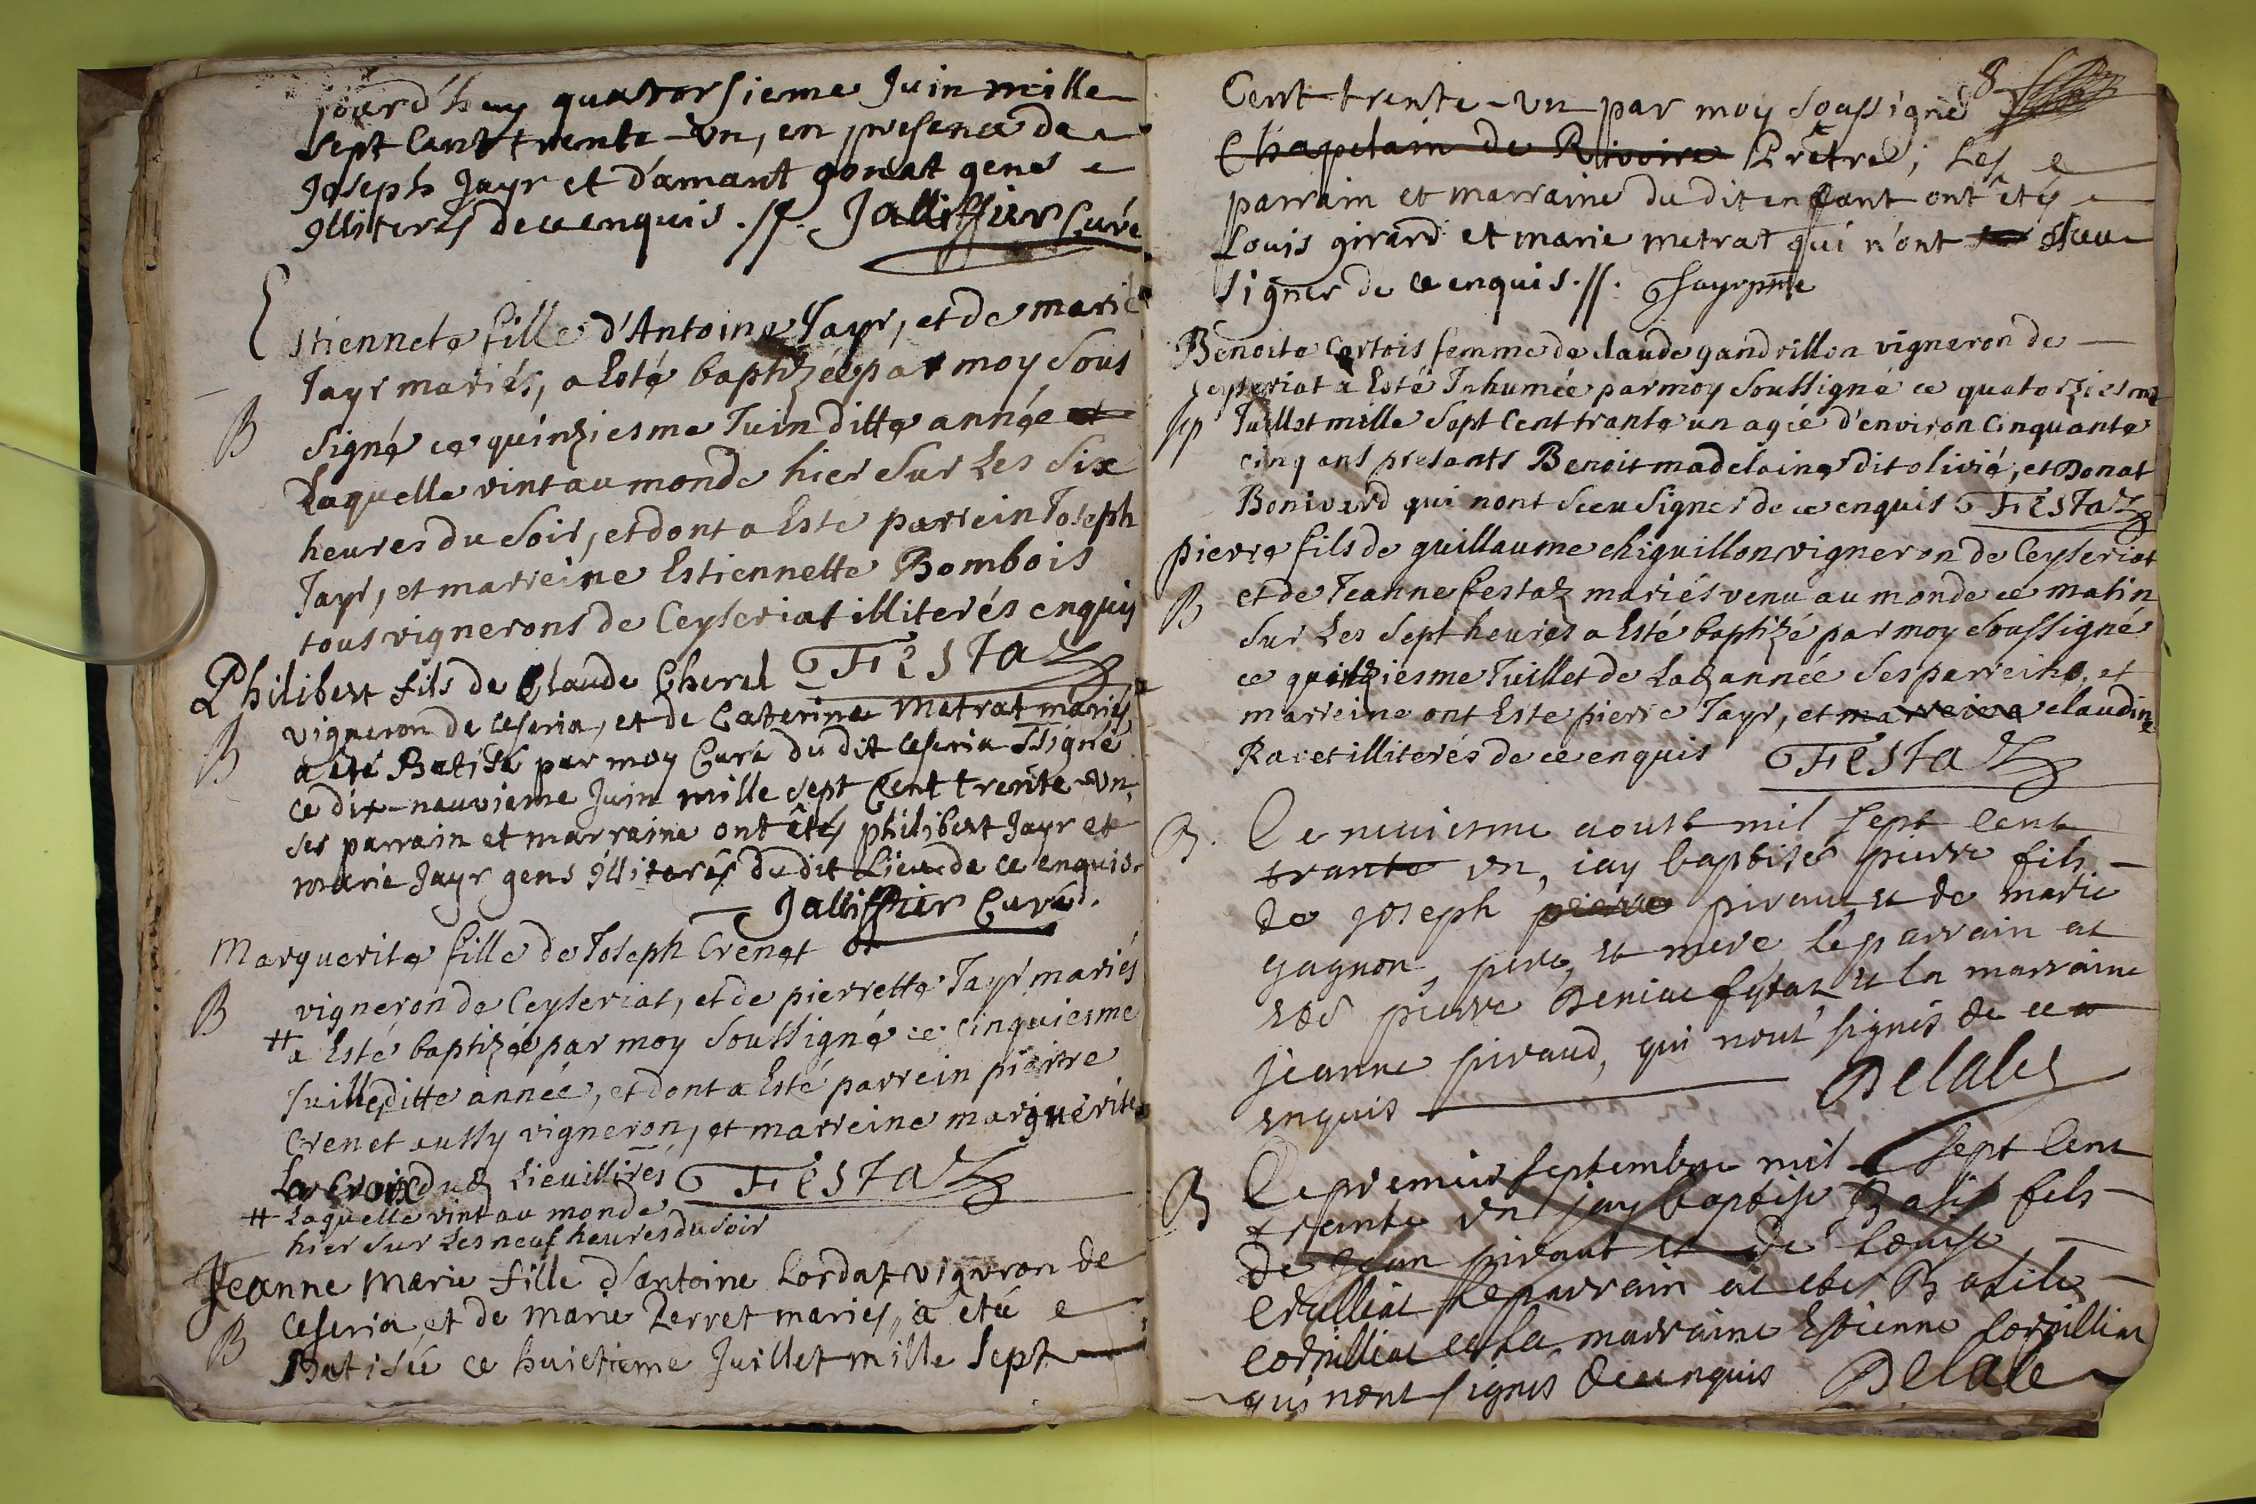 jourd'huy quatorsieme Juin mille
sept Cent trente-un, en presence de
Joseph Jayr et d'amant gonat gens
Illiterés de ce enquis .//. Jalliffier Curé
Estiennete fille d'Antoine Jayr, et de marie
Jayr mariés, a Esté baptizée par moy Sous
B
Signé ce quinziesme Juin ditte année et
Laquelle vint au monde hier Sur Les Six
heures du Soir, et dont a Esté parrein Joseph
Jayr, et marreine Estiennette Bombois
tous vignerons de Ceyseriat illiterés enquis
FESTAZ
Philibert fils de Claude Cherel
vigneron de Ceseria, et de Caterine Metrat mariés
B
a été Batisé par moy Curé du dit Ceseria Ssigné
ce dix-neuvieme Juin mille sept Cent trente-un,
ses parrain et marraine ont étés philibert Jayr et
marie Jayr gens illiterés du dit Lieu de ce enquis.
Jalliffier Curé.
Marguerite fille de Joseph Crenet
B
vigneron de Ceyseriat, et de pierrette Jayr mariés
# a Esté baptizée par moy Soussigné ce cinquiesme
Juillet ditte année, et dont a Esté parrein pierre
Crenet aussy vigneron, et marreine marguerite
La Croix dud Lieu illirés FESTAZ
# Laquelle vint au monde
hier Sur Les neuf heures du Soir
Jeanne Marie fille d'antoine Cordat vigneron de
Ceseria, et de Marie Perret mariés, a été
B
Batisée ce huictieme Juillet mille Sept
8
Cent-trente-un par moy soussigné
Chapelain de Rivoire Prêtre; Les
parrain et marraine du dit enfant ont étés
Louis girard et marie metrat qui n'ont sceu
signer de ce enquis .//. Jayr ptre
Benoite Cortois femme de claude gandrillon vigneron de
Ceyseriat a Esté Inhumée par moy Soussigné ce quatorziesme
Sep
Juillet mille Sept Cent trante un agée d'environ Cinquante
cinq ans presants Benoit madelaine dit olivié, et Donat
Bonivard qui nont Sceu Signer de ce enquis FESTAZ
pierre fils de guillaume chiguillon vigneron de Ceyseriat
B
et de Jeanne festaz mariés venu au monde ce matin
Sur Les Sept heures a Esté baptizé par moy Soussigné
ce quinziesme Juillet de Lad année Ses parreins, et
marreine ont Esté pierre Jayr, et marreine claudine
Racet illiterés de ce enquis FESTAZ
B.
Ce neuiesme aoust mil sept cent
trante un, iay baptisé pierre fils
de Joseph pierre piraut et de marie
gagnon, pere, et mere, le parrain at
esté pierre Deniau fytaz et la marraine
jeanne piraud, qui nont signés de ce
enquis DELALE
B
Ce premier septembre mil sept cent
trante un jay baptisé Basile fils
de Jean piraut et de Louise
Corilliat le parrain at esté Basile
corsillliat et la marraine Etienne Corsilliat
qui nont signés de ce enquis DELALE